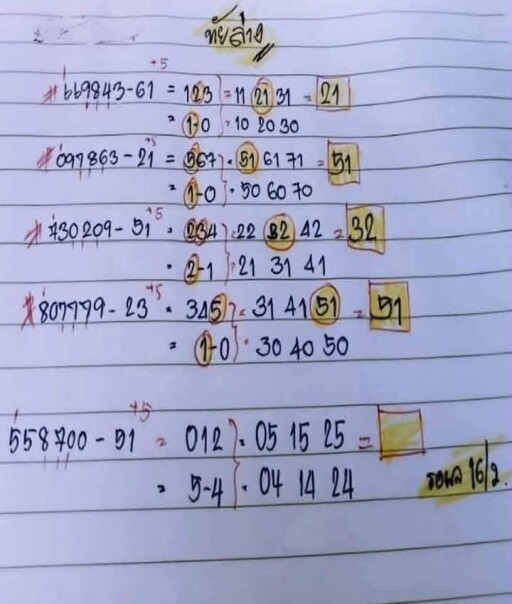 ทัยล่าง
+5
669843-61 = 123 = 11 21 31 = 21
= 1-0 10 20 30
+5
097863-21 = 567 51 61 71 = 51
= 1-0 50 60 70
+5
730209-51 234 22 32 42 = 32
= 2-1 21 31 41
+5
807779-23 345 = 31 41 51 = 51
= 1-0 30 40 50
+5
558700-91 = 012 05 15 25 =
= 5-4 04 14 24
รอผล 16/2